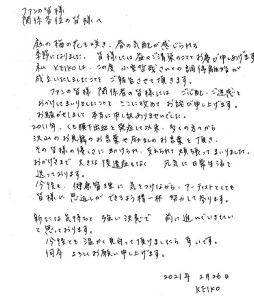 ファンの皆様
関係各位の皆様へ
庭の梅の花も咲き、春の気配が感じられる
季節になりました。皆様には益々ご清栄のこととお慶び申しあげます。
私 KEIKOは、この度 小室哲哉さんとの調停離婚が
成立いたしましたことをご報告させて頂きます。
ファンの皆様 関係者の皆様には ご心配・ご迷惑を
おかけしまして ここに改めてお詫び申し上げます。
お騒がせしまして 本当に申し訳ありませんでした。
2011年、くも膜下出血を発症して以来、多くの方々から
沢山のお見舞のお言葉や励ましのお言葉を頂き、
その皆様の優しさにおかげられ、支えられて 頑張ってまいりました。
おかげさまで 大きな後遺症もなく 元気に日常生活を
送っております。
今後も、健康管理に気をつけながら、アーティストとしても
皆様に恩返しができるよう精一杯 努めて参ります。
新たな気持ちと 強い決意で 前に進んでいきたい
と思っております。
今後とも 温かく見守って頂けましたら 幸いです。
何卒 よろしくお願い申し上げます。
2021年 2月26日
KEIKO